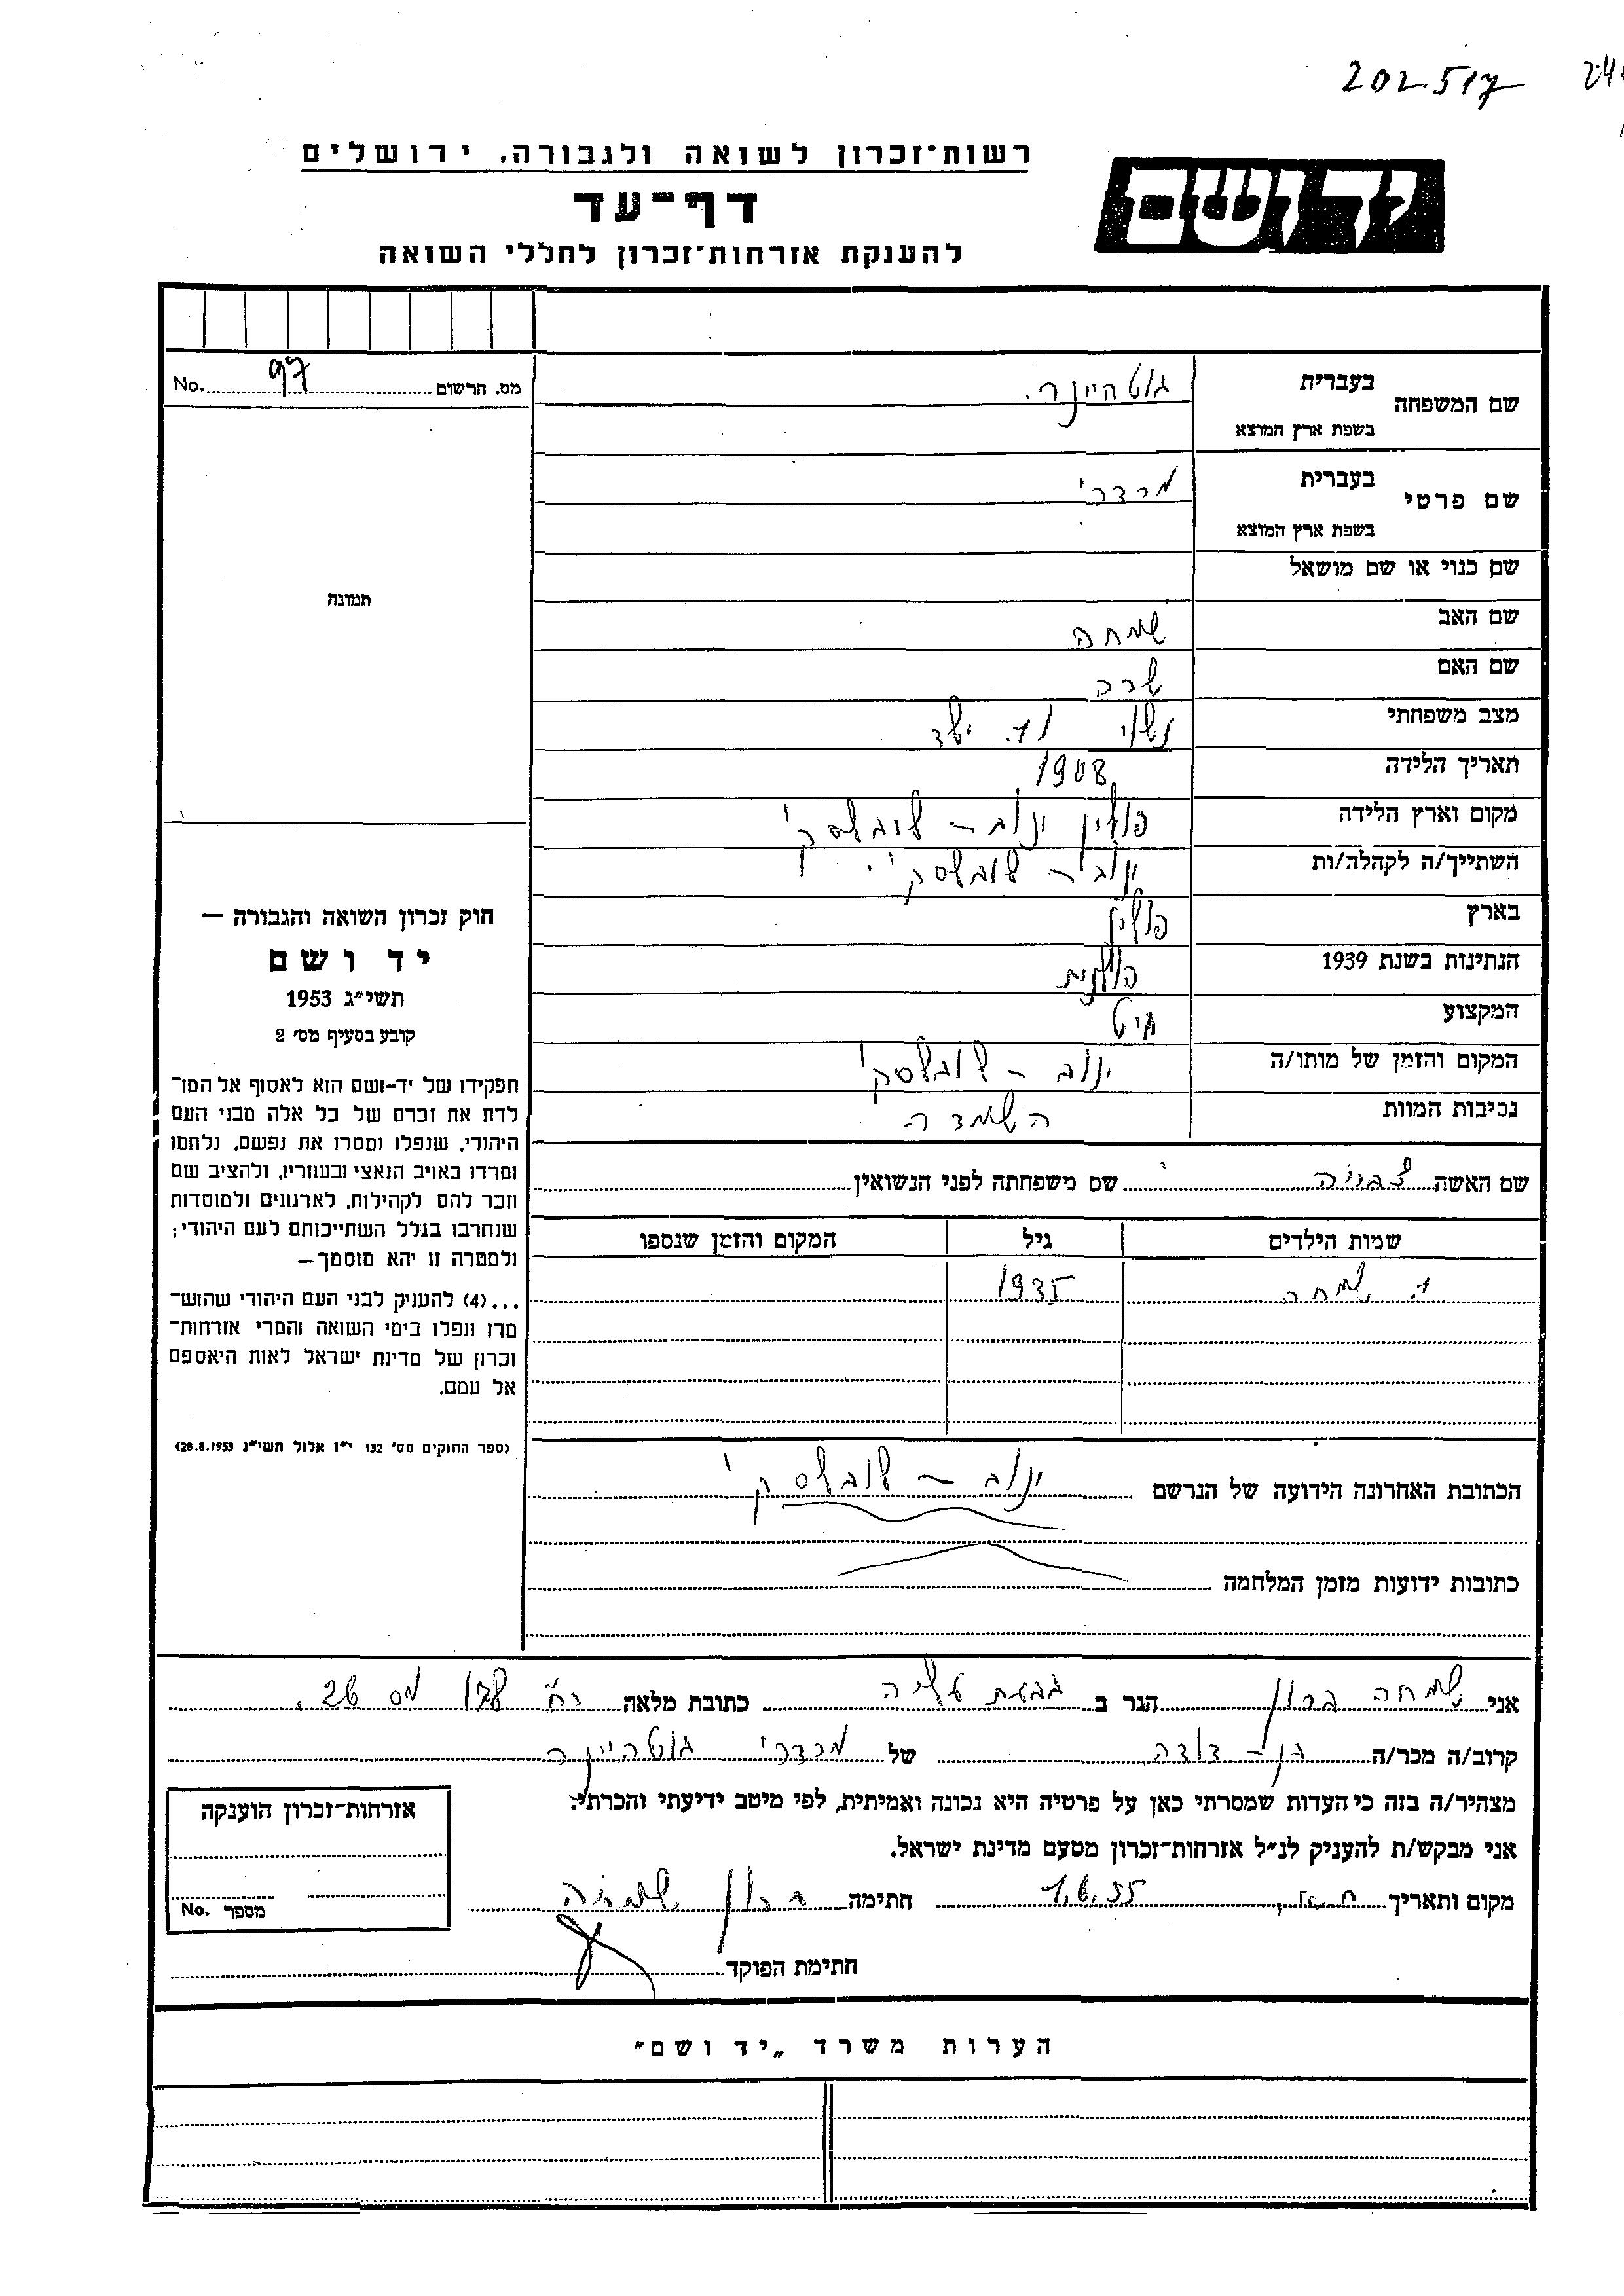 202.517
רשות־זכרון לשואה ולגבורה, ירושלים
יד ושם
דף־עד
להענקת אזרחות־זכרון לחללי השואה
No. 97 מס. הרשום
תמונה
שם המשפחה
בעברית גוטהיינר.
בשפת ארץ המוצא
שם פרטי
בעברית מרדכי
בשפת ארץ המוצא
שם כנוי או שם מושאל
שם האב שמחה
שם האם שרה
מצב משפחתי נשוי ילד
תאריך הלידה 1908
מקום וארץ הלידה פולין ינוב – לובלסקי
השתייך/ה לקהלה/ות ינוב – לובלסקי
בארץ פולין
הנתינות בשנת 1939 פולנית
המקצוע חיט
המקום והזמן של מותו/ה ינוב – לובלסקי
נסיבות המוות השמדה
שם האשה שם משפחתה לפני הנשואין
שמות הילדים גיל המקום והזמן שנספו
1. שמחה 1935
הכתובת האחרונה הידועה של הנרשם ינוב – לובלסקי
כתובות ידועות מזמן המלחמה
חוק זכרון השואה והגבורה —
יד ושם
תשי״ג 1953
קובע בסעיף מס׳ 2
תפקידו של יד-ושם הוא לאסוף אל המו־
לדת את זכרם של כל אלה מבני העם
היהודי, שנפלו ומסרו את נפשם, נלחמו
ומרדו באויב הנאצי ובעוזריו, ולהציב שם
וזכר להם לקהילות, לארגונים ולמוסדות
שנחרבו בגלל השתייכותם לעם היהודי;
ולמטרה זו יהא מוסמך—
...(4) להעניק לבני העם היהודי שהוש־
מדו ונפלו בימי השואה והמרי אזרחות־
זכרון של מדינת ישראל לאות היאספם
אל עמם.
(ספר החוקים מס׳ 132 י״ז אלול תשי״ג 28.8.1953)
אני שמחה ברון הגר ב גבעת עליה כתובת מלאה רח׳ 178 מס 26.
קרוב/ה מכר/ה בן – דודה של מרדכי גוטהיינר
מצהיר/ה בזה כי העדות שמסרתי כאן על פרטיה היא נכונה ואמיתית, לפי מיטב ידיעתי והכרתי.
אני מבקש/ת להעניק לנ״ל אזרחות־זכרון מטעם מדינת ישראל.
מקום ותאריך 1.6.55 חתימה ברון שמחה
חתימת הפוקד
אזרחות־זכרון הוענקה
No. מספר
הערות משרד „יד ושם״